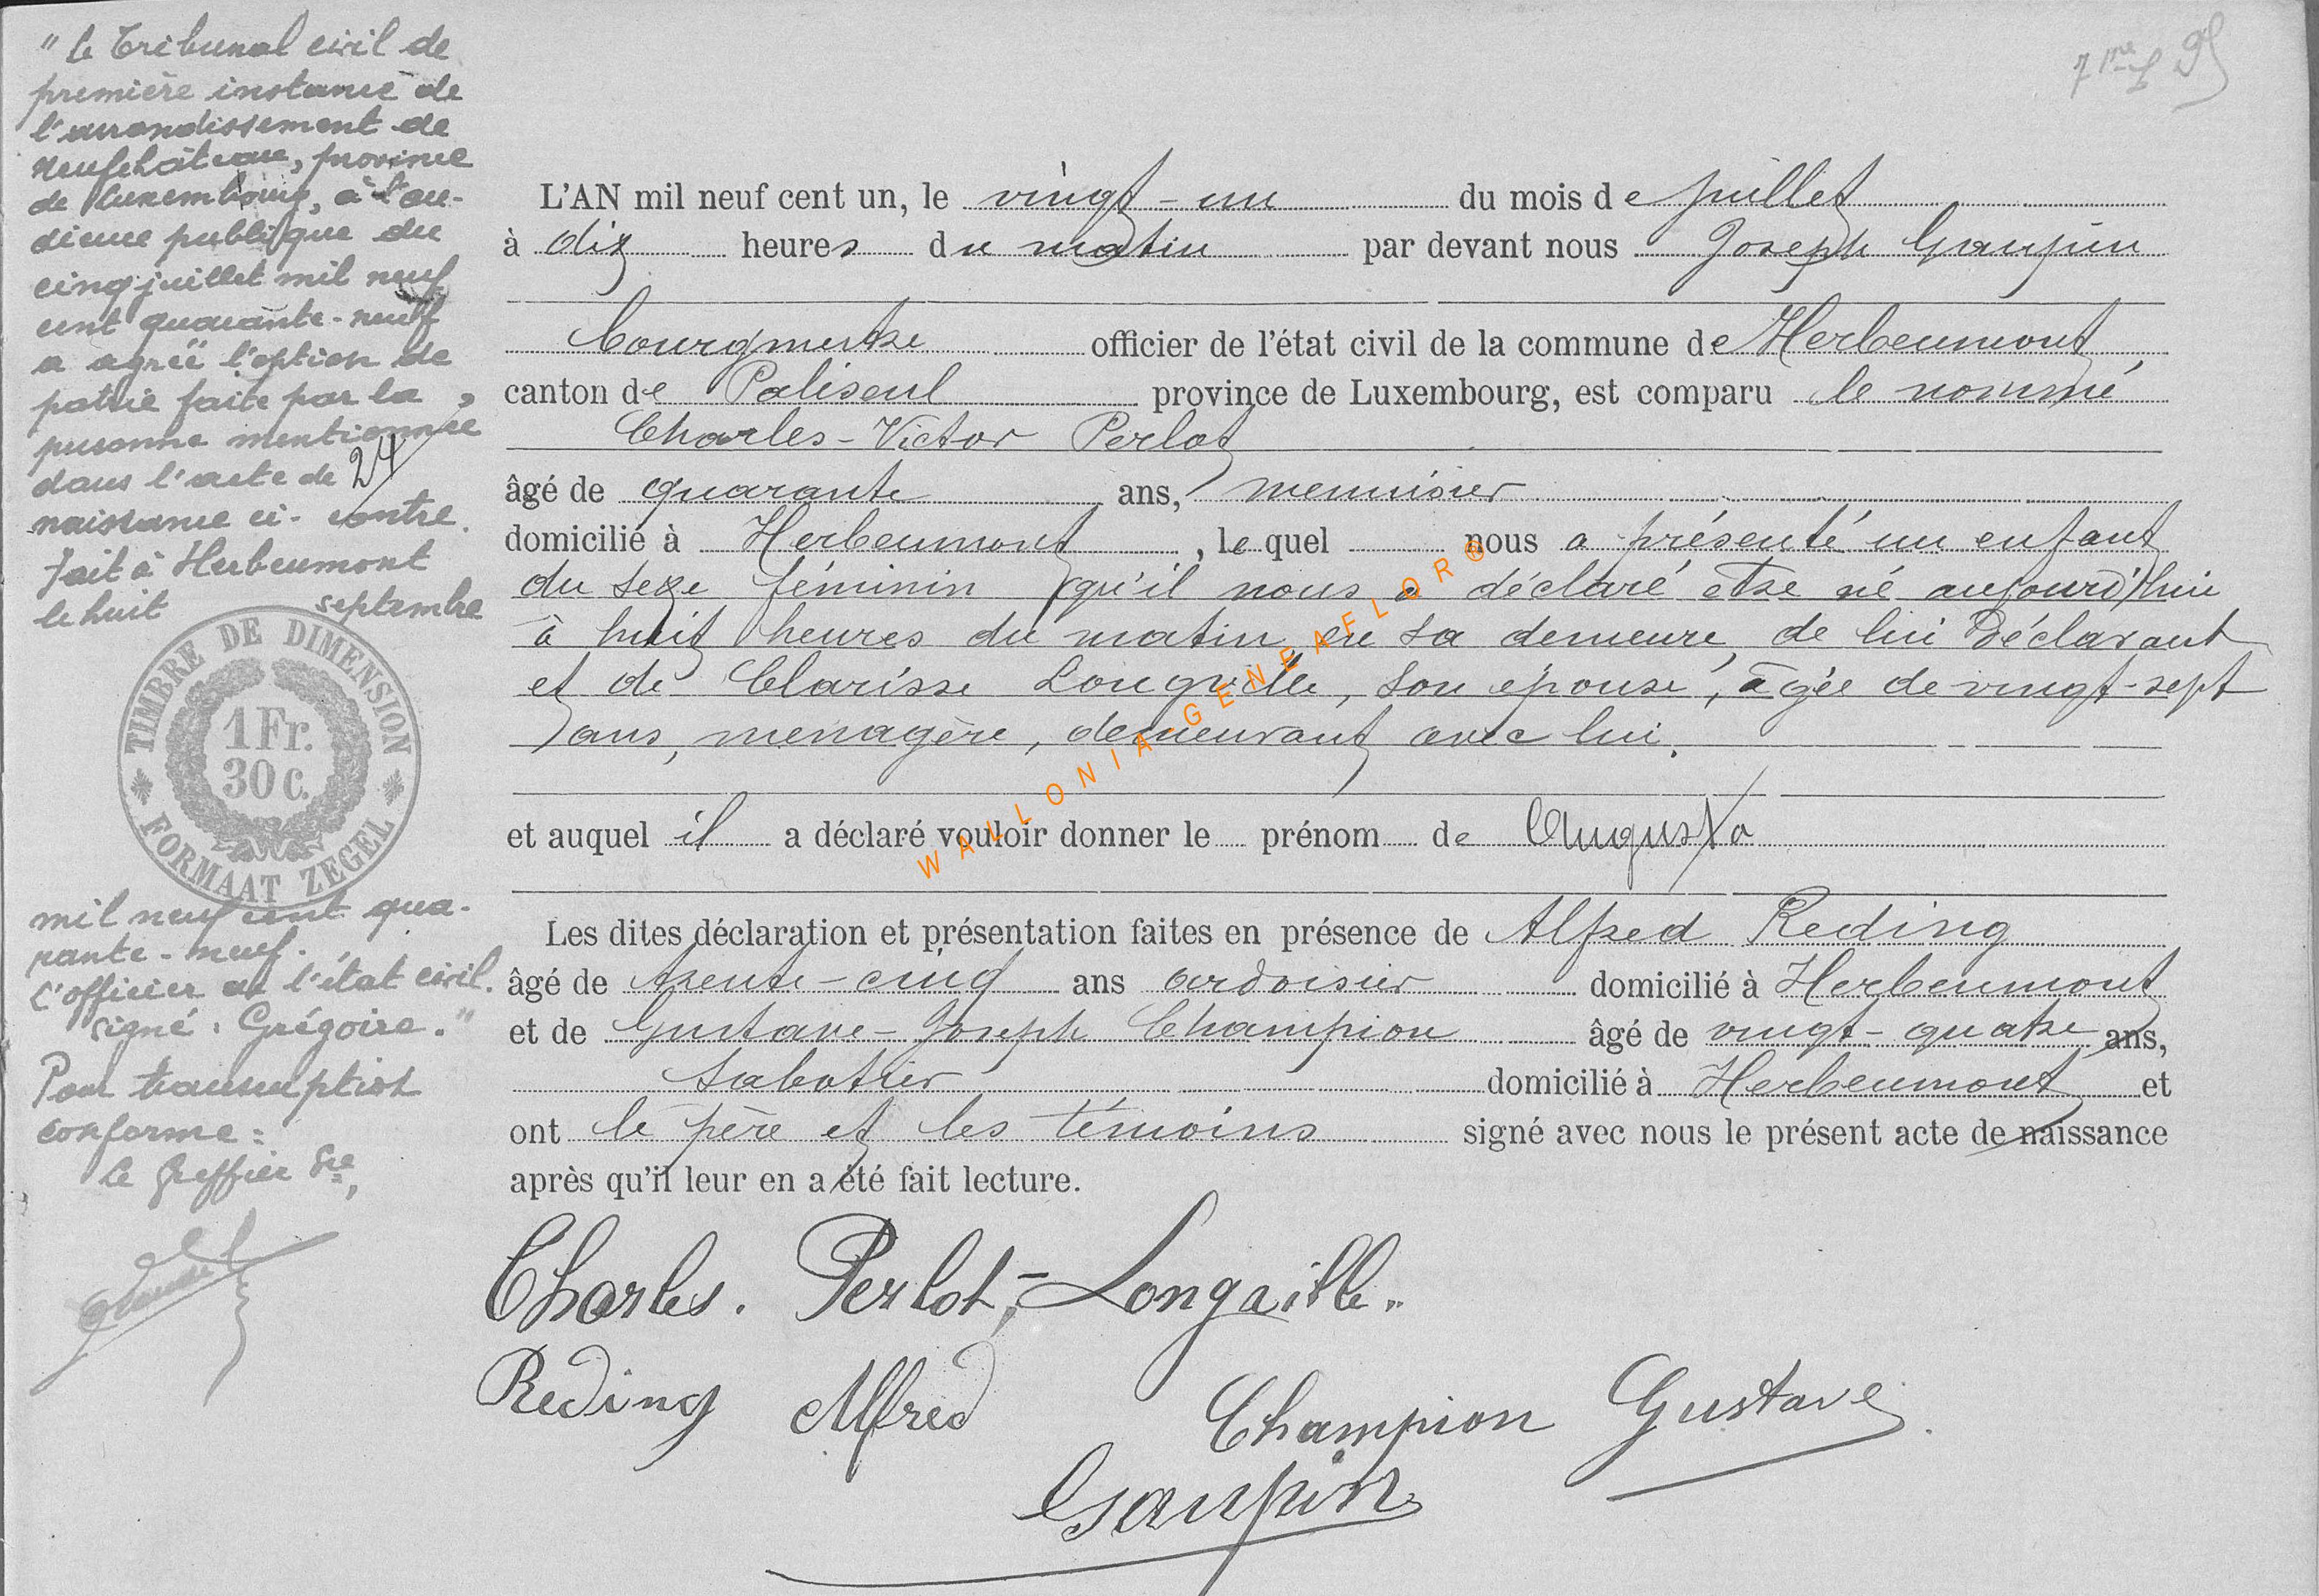 " Le Tribunal civil de
première instance de
l'arrondissement de
Neufchâteau, province
de Luxembourg, à l'au-
dience publique du
cinq juillet mil neuf
cent quarante-neuf
a agréé l'option de
patrie faite par la
personne mentionnée
dans l'acte de
naissance ci-contre.
Fait à Herbeumont
le huit septembre
TIMBRE DE DIMENSION
1 Fr.
30 c.
FORMAAT ZEGEL
mil neuf cent qua-
rante-neuf.
L'officier de l'état civil.
signé : Grégoire. "
Pour transcription
conforme :
le Greffier
24
L'AN mil neuf cent un, le vingt-un du mois de juillet
à dix heures du matin par devant nous Joseph Gaupin
bourgmestre officier de l'état civil de la commune de Herbeumont,
canton de Paliseul province de Luxembourg, est comparu le nommé
Charles-Victor Perlot
âgé de quarante ans, menuisier
domicilié à Herbeumont, le quel nous a présenté un enfant
du sexe féminin qu'il nous a déclaré etre né aujourd'hui
à huit heures du matin, en sa demeure, de lui Déclarant
et de Clarisse Longville, son épouse, âgée de vingt-sept
ans, menagère, demeurant avec lui.
et auquel il a déclaré vouloir donner le prénom de Augusta
Les dites déclaration et présentation faites en présence de Alfred Reding
âgé de trente-cinq ans ardoisier domicilié à Herbeumont
et de Gustave-Joseph Champion âgé de vingt-quatre ans,
sabotier domicilié à Herbeumont et
ont le père et les témoins signé avec nous le présent acte de naissance
après qu'il leur en a été fait lecture.
Charles. Perlot,-Longville.
Reding Alfred Champion Gustave
Gaupin
WALLONIA-GENEAFLOR®